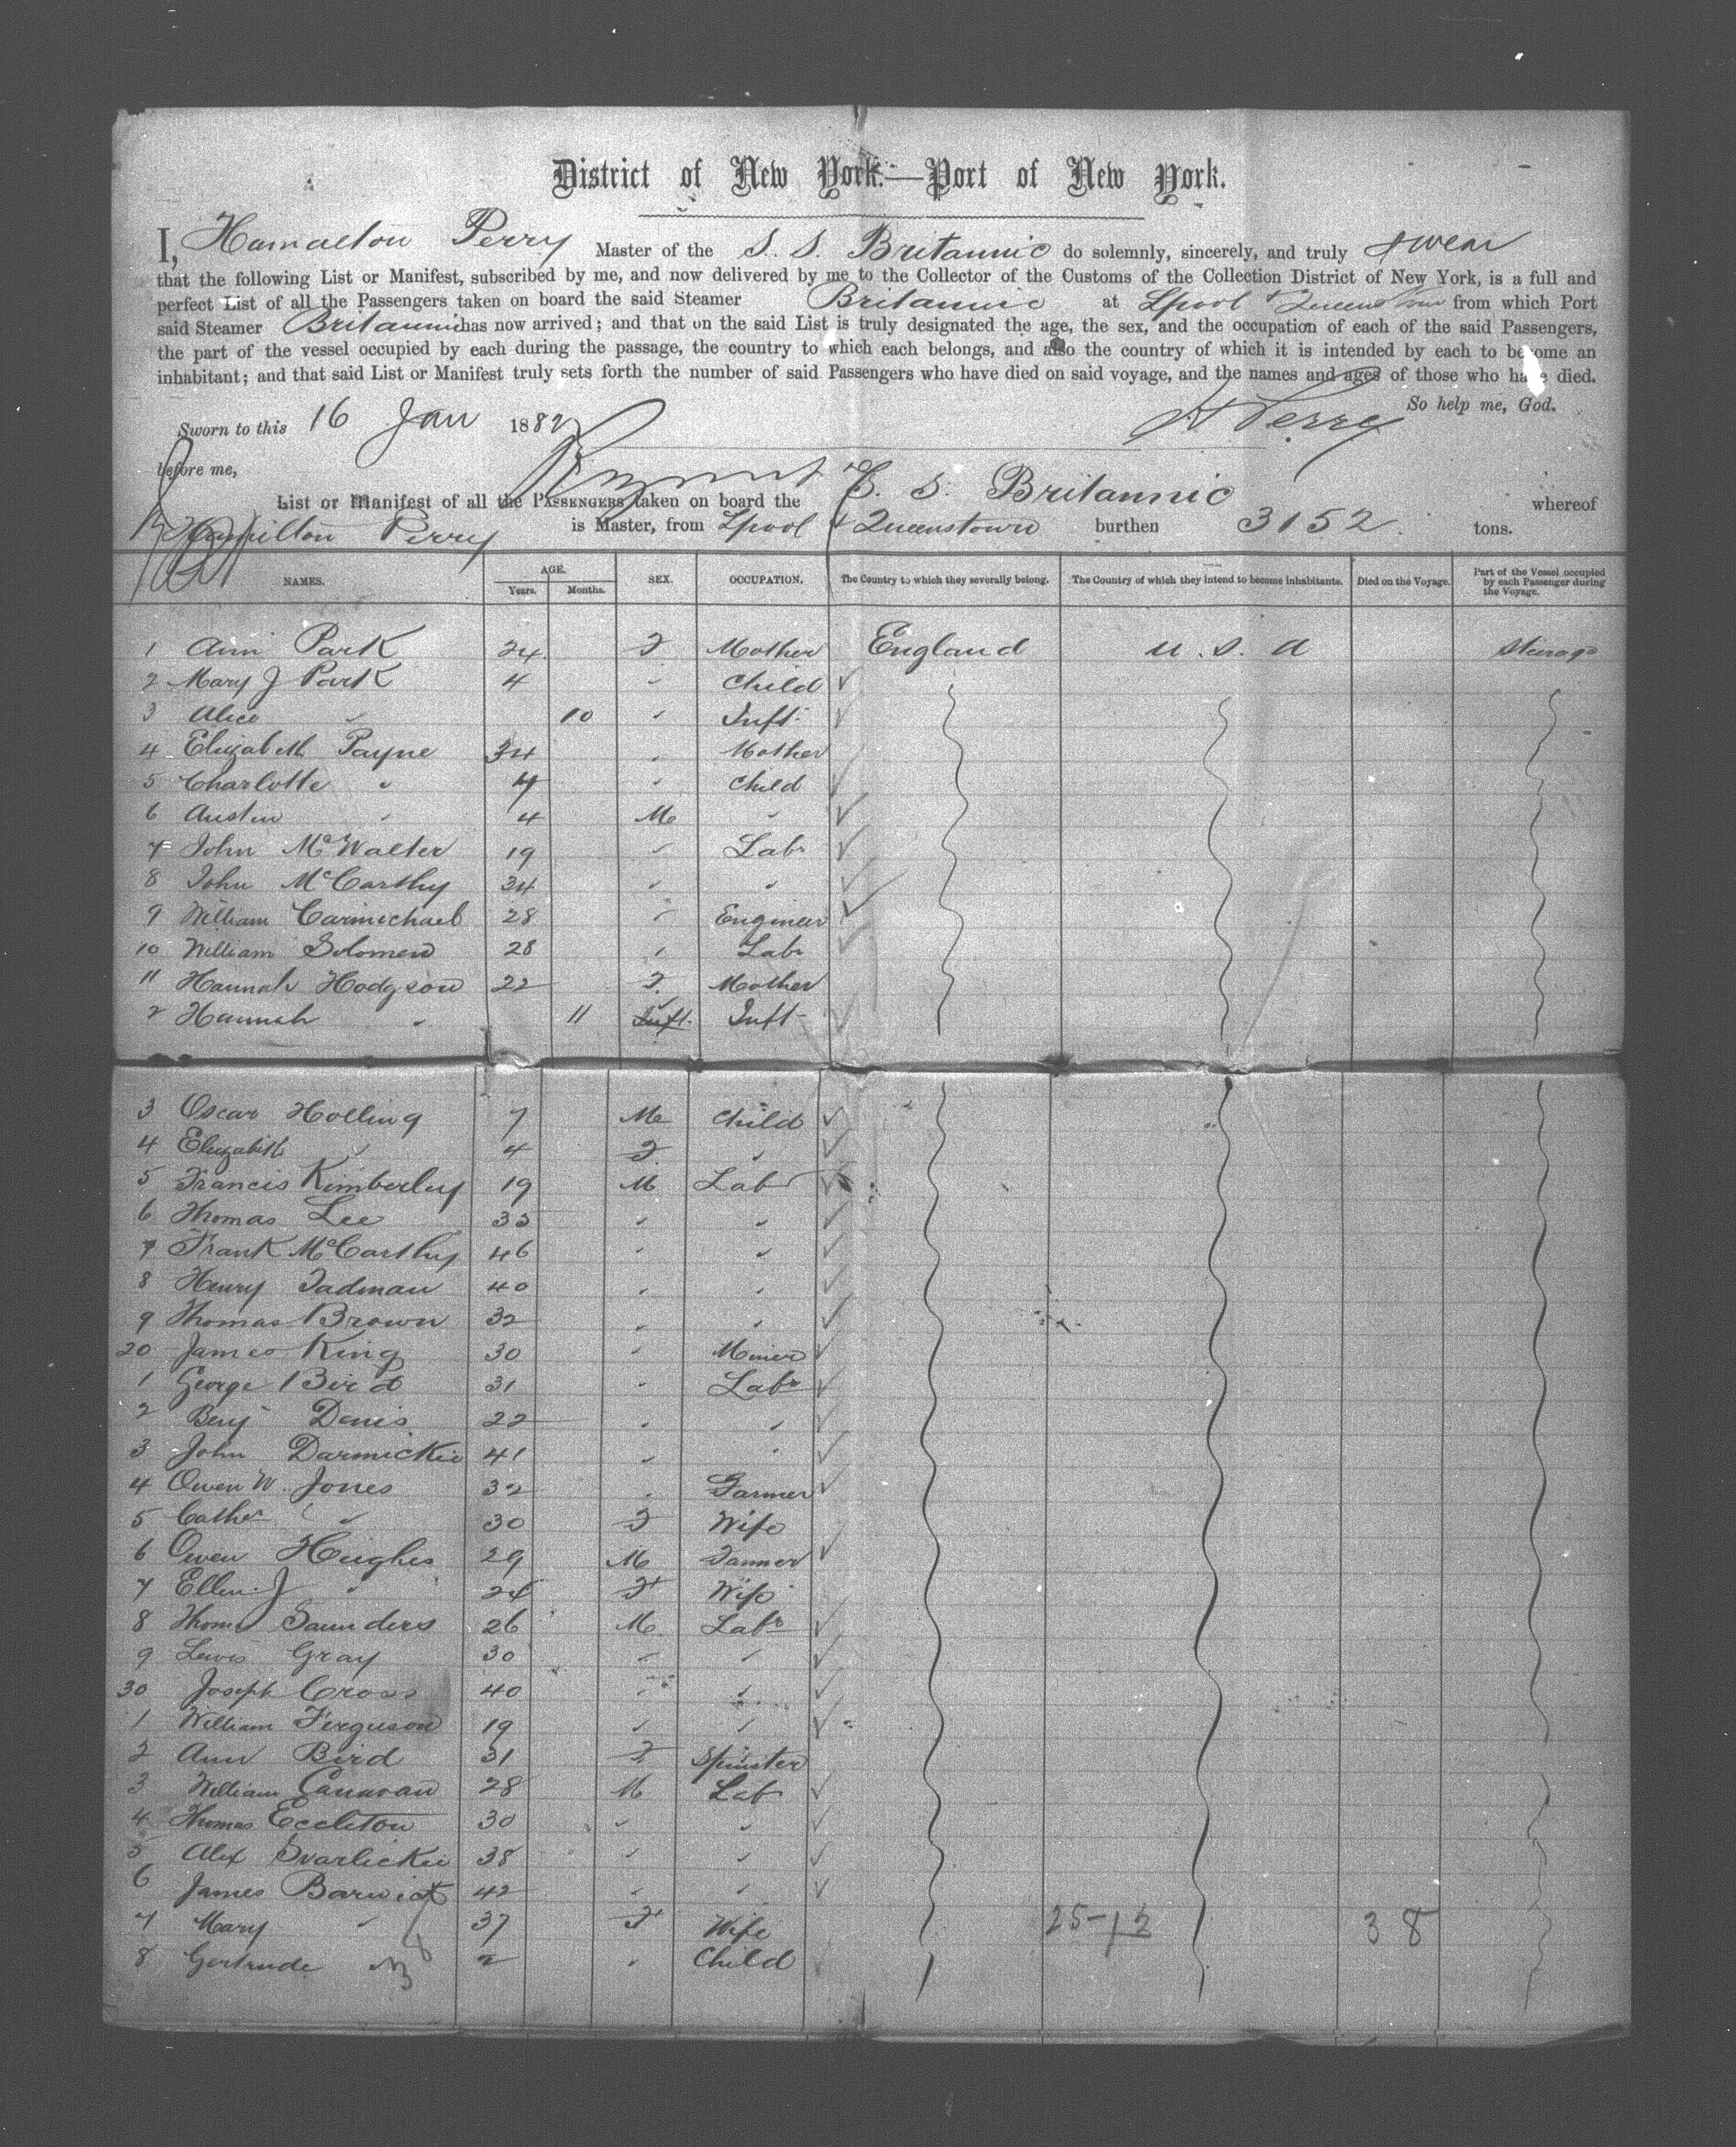 District of New York.—Port of New York.
I, Hamalton Perry Master of the S. S. Britannic do solemnly, sincerely, and truly swear
that the following List or Manifest, subscribed by me, and now delivered by me to the Collector of the Customs of the Collection District of New York, is a full and
perfect List of all the Passengers taken on board the said Steamer Britannic at Lpool & Queenstown from which Port
said Steamer Britannic has now arrived; and that on the said List is truly designated the age, the sex, and the occupation of each of the said Passengers,
the part of the vessel occupied by each during the passage, the country to which each belongs, and also the country of which it is intended by each to become an
inhabitant; and that said List or Manifest truly sets forth the number of said Passengers who have died on said voyage, and the names and ages of those who have died.
So help me, God.
Sworn to this 16 Jan 1882 H Perry
before me,
List or Manifest of all the PASSENGERS taken on board the S. S. Britannic whereof
Hamilton Perry is Master, from Lpool & Queenstown burthen 3152 tons.
NAMES. AGE. Years. Months. SEX. OCCUPATION. The Country to which they severally belong. The Country of which they intend to become inhabitants. Died on the Voyage. Part of the Vessel occupied by each Passenger during the Voyage.
1 Ann Park 24 F Mother England U. S. A Steerage
2 Mary J Park 4 " Child
3 Alice " 10 " Inft
4 Elizabeth Payne 34 " Mother
5 Charlotte " 4 " Child
6 Austin " 4 M "
7 John McWalter 19 " Labr
8 John McCarthy 34 " "
9 William Carmichael 28 " Engineer
10 William Solomen 28 " Labr
11 Hannah Hodgson 22 F Mother
2 Hannah " 11 " Inft
3 Oscar Holling 7 M Child
4 Elizabith " 4 F "
5 Francis Kimberley 19 M Labr
6 Thomas Lee 35 " "
7 Frank McCarthy 46 " "
8 Henry Tadman 40 " "
9 Thomas Brown 32 " "
20 James King 30 " Miner
1 George Bird 31 " Labr
2 Benj Denis 22 " "
3 John Darmickie 41 " "
4 Owen W. Jones 32 " Farmer
5 Cathe " 30 F Wife
6 Owen Hughes 29 M Farmer
7 Ellen J " 24 F Wife
8 Thomas Saunders 26 M Labr
9 Lewis Gray 30 " "
30 Joseph Cross 40 " "
1 William Ferguson 19 " "
2 Ann Bird 31 F Spinster
3 William Canavan 28 M Labr
4 Thomas Eccleton 30 " "
5 Alex Svarlickie 38 " "
6 James Barwick 42 " "
7 Mary " 37 F Wife 25-13 38
8 Gertrude 2 " Child